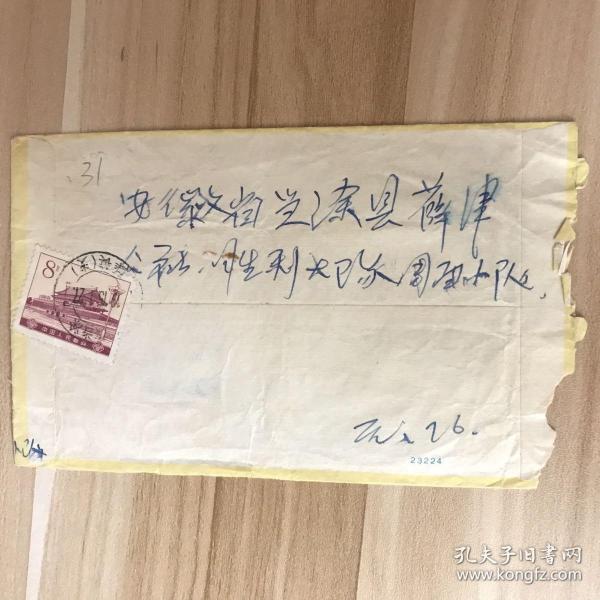 31
安徽省当涂县薛津
公社胜利大队周西小队
8
中国人民邮政
26.
23224
孔夫子旧书网
www.kongfz.com